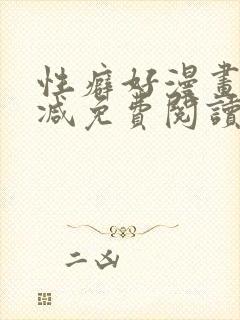 性癖好漫畫
减免費閱讀
二凶